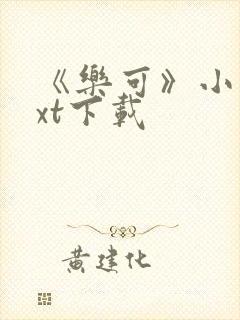 《樂可》小
xt下載
黄建化